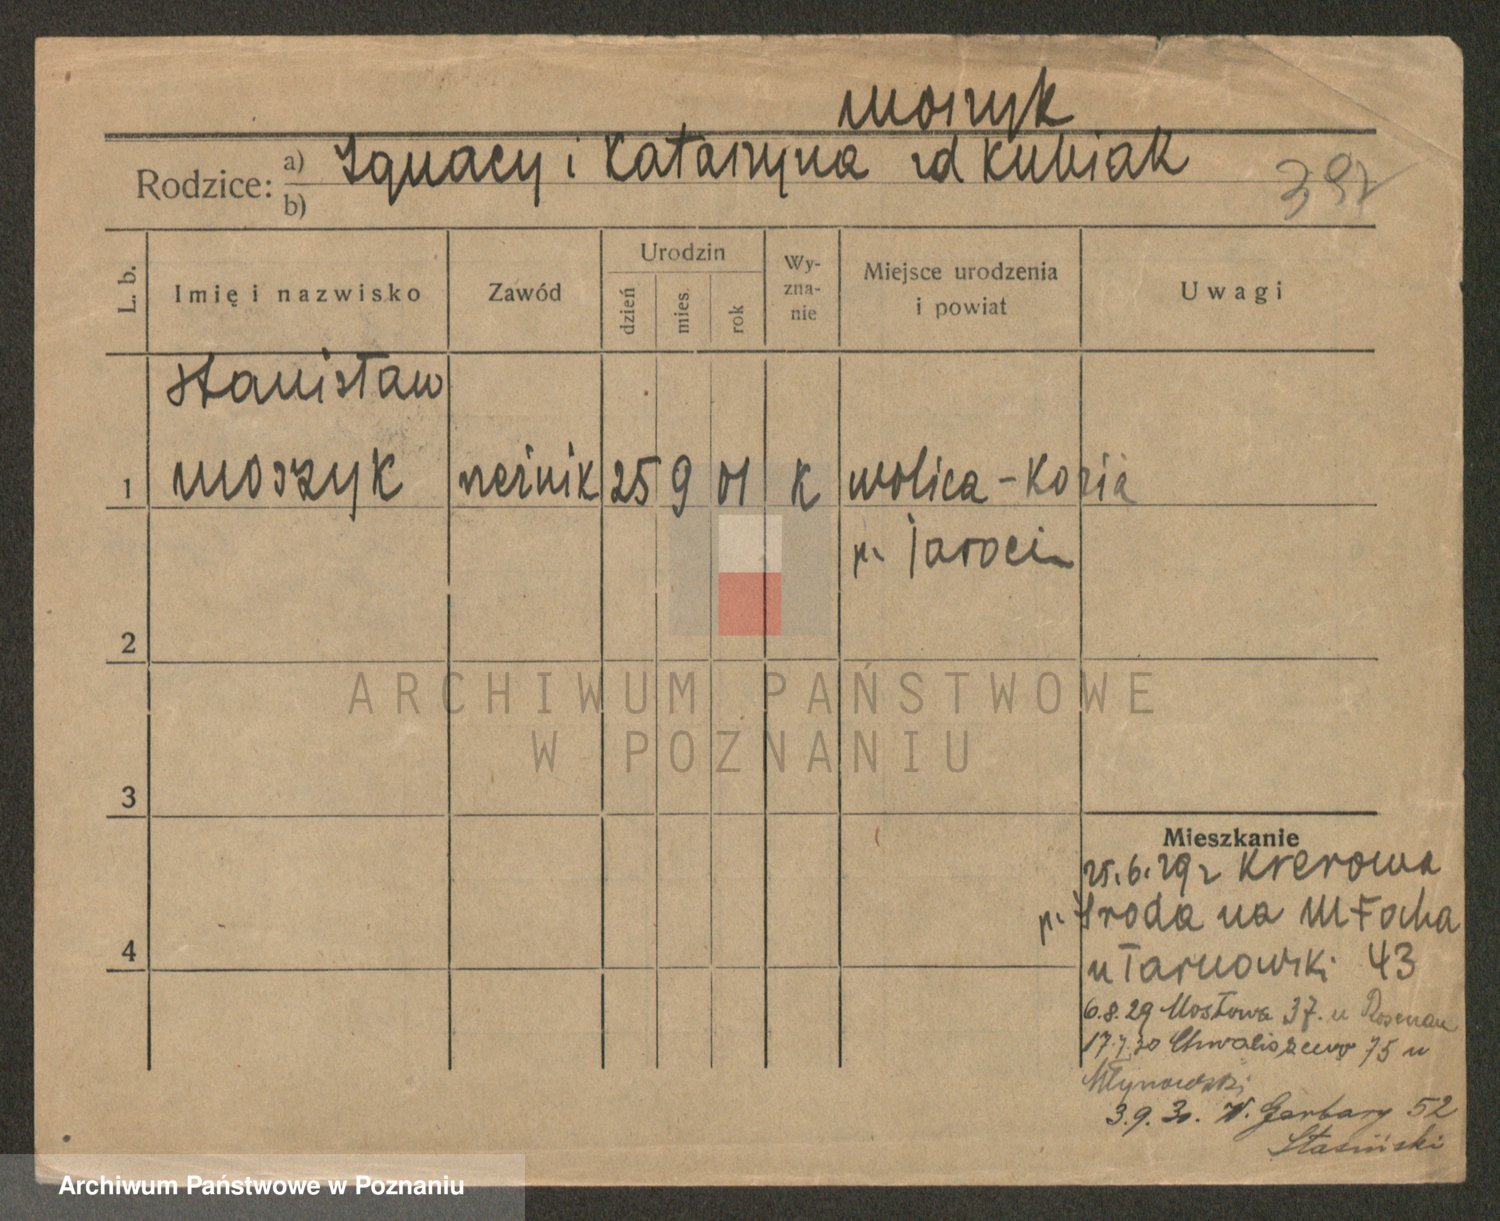 Moszyk
Rodzice: a) Ignacy i Katarzyna zd Kubiak
b)
392
L. b.
Imię i nazwisko
Zawód
Urodzin
dzień
mies.
rok
Wy-
zna-
nie
Miejsce urodzenia
i powiat
Uwagi
Stanisław
1 Moszyk rzeźnik 25 9 01 K Wolica-Kozia
p. Jarocin
2
3
4
Mieszkanie
25.6.29 z Krerowa
p. Środa na M Focha
u Tarnowski 43
6.8.29 Mostowa 37. u Rosenau
17.7.30 Chwaliszewo 75 u
Młynowski
3.9.30. W. Garbary 52
Stasiński
ARCHIWUM PAŃSTWOWE
W POZNANIU
Archiwum Państwowe w Poznaniu